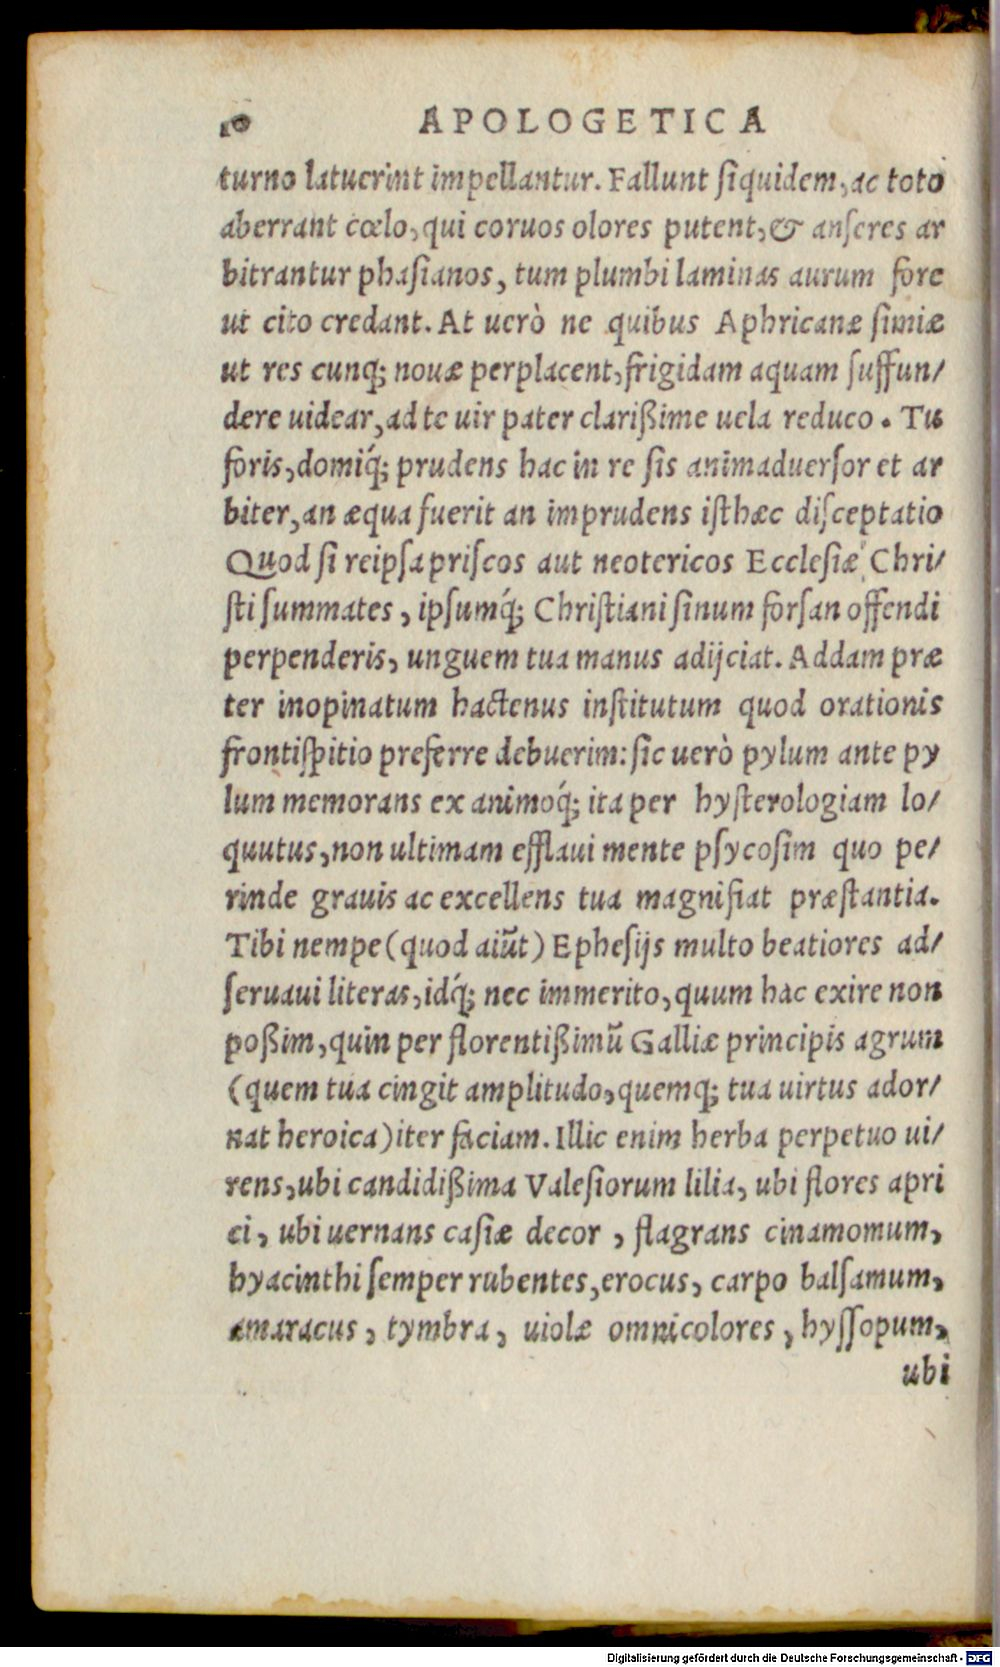 10 APOLOGETICA
turno latuerint impellantur. Fallunt ſiquidem, ac toto
aberrant cœlo, qui coruos olores putent, & anſeres ar
bitrantur phaſianos, tum plumbi laminas aurum fore
ut cito credant. At uerò ne quibus Aphricanæ ſimiæ
ut res cunq; nouæ perplacent, frigidam aquam ſuffun/
dere uidear, ad te uir pater clarißime uela reduco. Tu
foris, domiq́; prudens hac in re ſis animaduerſor et ar
biter, an æqua fuerit an imprudens iſthæc diſceptatio
Quod ſi reipſa priſcos aut neotericos Eccleſiæ Chri/
ſti ſummates, ipſumq́; Chriſtiani ſinum forſan offendi
perpenderis, unguem tua manus adijciat. Addam præ
ter inopinatum hactenus inſtitutum quod orationis
frontiſpitio preferre debuerim: ſic uerò pylum ante py
lum memorans ex animoq́; ita per hyſterologiam lo/
quutus, non ultimam efflaui mente pſycoſim quo pe/
rinde grauis ac excellens tua magnifiat præſtantia.
Tibi nempe (quod aiũt) Epheſijs multo beatiores ad/
ſeruaui literas, idq́; nec immerito, quum hac exire non
poßim, quin per florentißimũ Galliæ principis agrum
(quem tua cingit amplitudo, quemq; tua uirtus ador/
nat heroica) iter faciam. Illic enim herba perpetuo ui/
rens, ubi candidißima Valeſiorum lilia, ubi flores apri
ci, ubi uernans caſiæ decor, flagrans cinamomum,
hyacinthi ſemper rubentes, erocus, carpo balſamum,
amaracus, tymbra, uiolæ omnicolores, hyſſopum,
ubi
Digitalisierung gefördert durch die Deutsche Forschungsgemeinschaft - DFG